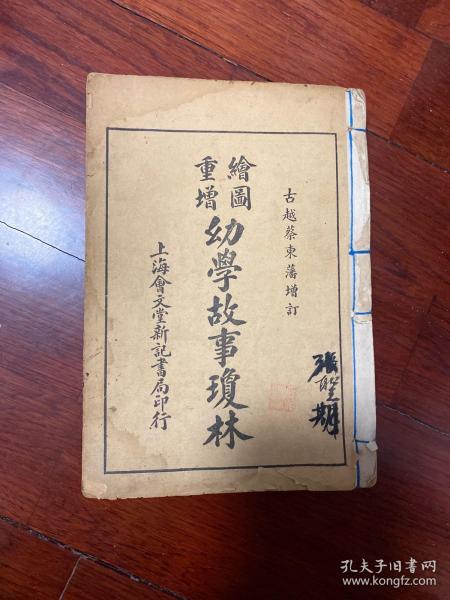 古越蔡東藩增訂
繪圖
重增
幼學故事瓊林
上海會文堂新記書局印行
張聖期
孔夫子旧书网
www.kongfz.com